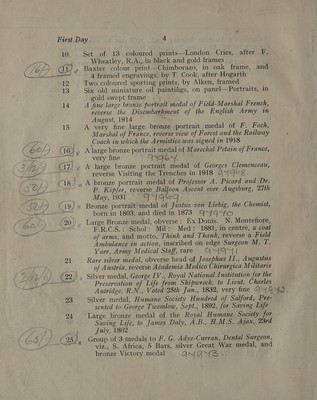 First Day 4
10 Set of 13 coloured prints—London Cries, after F.
Wheatley, R.A., in black and gold frames
16/- 11 Baxter colour print—Chimborazo, in oak frame, and
4 framed engravings, by T. Cook, after Hogarth
12 Two coloured sporting prints, by Alken, framed
13 Six old miniature oil paintings, on panel—Portraits, in
gold swept frame
14 A fine large bronze portrait medal of Field-Marshal French,
reverse the Disembarkment of the English Army in
August, 1914
15 A very fine large bronze portrait medal of F. Foch,
Marshal of France, reverse view of Forest and the Railway
Coach in which the Armistice was signed in 1918
60/- 16 A large bronze portrait medal of Marechal Petain of France,
very fine
17 A large bronze portrait medal of Georges Clemenceau,
reverse Visiting the Trenches in 1918
50/- 18 A bronze portrait medal of Professor A. Picard and Dr.
P. Kipfer, reverse Balloon Ascent over Augsburg, 27th
May, 1931
50/- 19 Bronze Portrait medal of Justus von Liebig, the Chemist,
born in 1803, and died in 1873
60/- 20 Large Bronze Medal, obverse: Ex Donis. N. Montefiore,
F.R.C.S.: Schol: Mil: Med: 1881, in centre, a coat
of arms, and motto, Think and Thank, reverse a Field
Ambulance in action, inscribed on edge Surgeon M. T.
Yarr, Army Medical Staff, rare
21 Rare silver medal, obverse head of Josephus II., Augustus
of Austria, reverse Academia Medico Chirurgica Militaris
22 Silver medal, George IV., Royal National Institution for the
Preservation of Life from Shipwreck, to Lieut. Charles
Autridge, R.N., Voted 28th Jan., 1832, very fine
23 Silver medal, Humane Society Hundred of Salford, Pre-
sented to George Twenlow, Sept., 1892, for Saving Life
24 Large bronze medal of the Royal Humane Society for
Saving Life, to James Daly, A.B., H.M.S. Ajax, 23rd
July, 1862
65/- 25 Group of 3 medals to F. G. Adye-Curran, Dental Surgeon,
viz., S. Africa, 5 Bars, silver Great War medal, and
bronze Victory medal